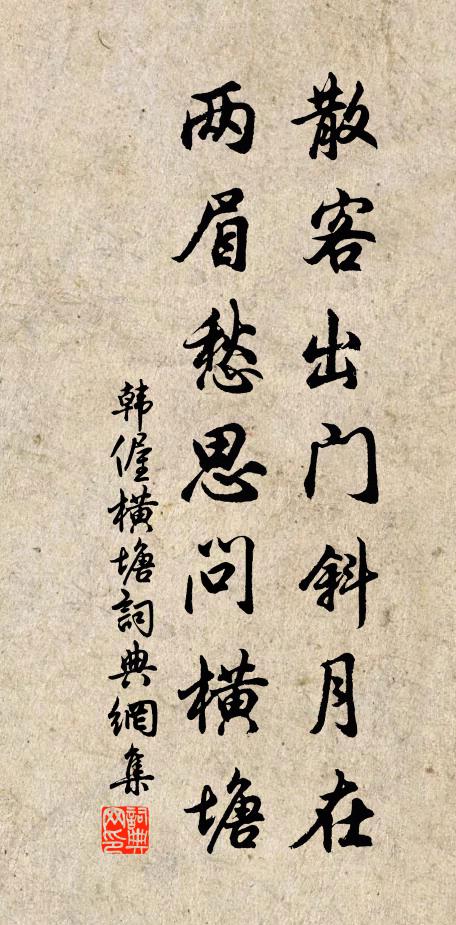 散客出门斜月在
两眉愁思问横塘
韩偓橫塘詞典網集
詞典网印